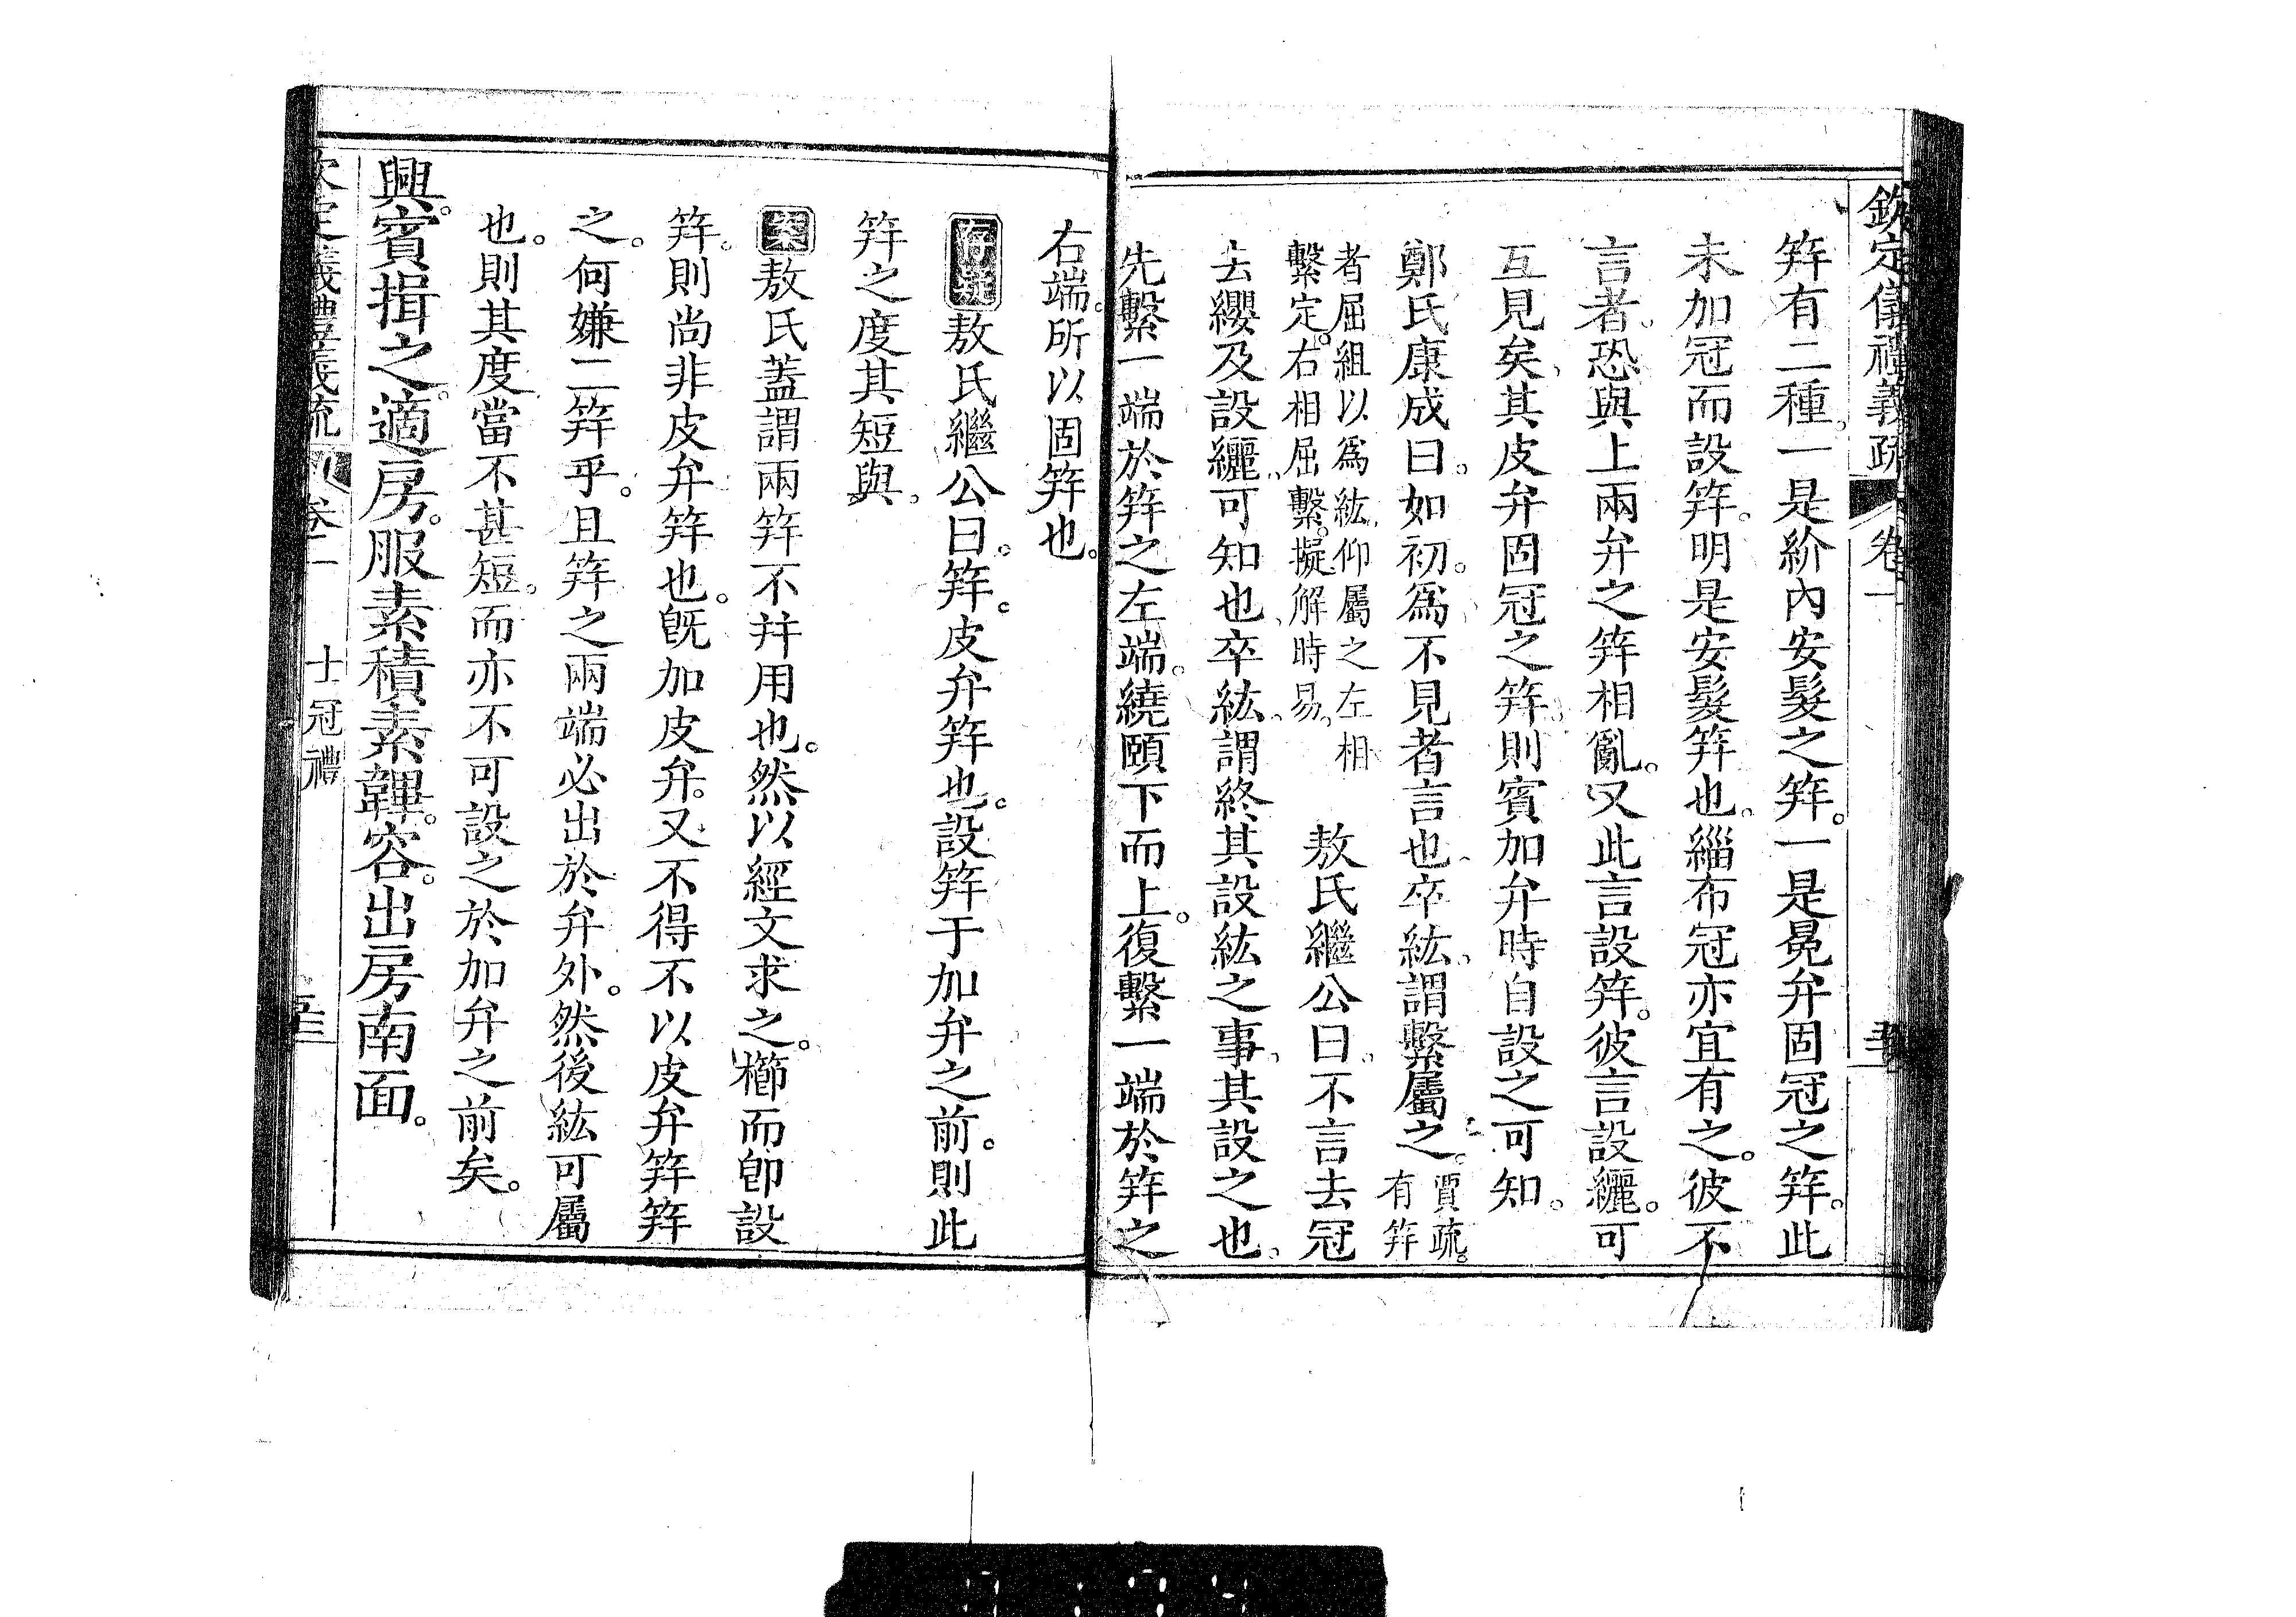 欽定儀禮義疏 卷一
笄有二種。一是紒內安髮之笄。一是冕弁固冠之笄。此
未加冠而設笄。明是安髮笄也。緇布冠亦宜有之。彼不
言者。恐與上兩弁之笄相亂。又此言設笄。彼言設纚。可
互見矣。其皮弁固冠之笄。則賓加弁時自設之可知。
鄭氏康成曰。如初。爲不見者言也。卒紘。謂繫屬之。賈疏。有笄
者屈組以爲紘。仰屬之左相
繫定。右相屈繫。擬解時易。
敖氏繼公曰。不言去冠
去纓及設纚。可知也。卒紘。謂終其設紘之事。其設之也。
先繫一端於笄之左端。繞頤下而上。復繫一端於笄之
右端。所以固笄也。
存疑敖氏繼公曰。笄。皮弁笄也。設笄于加弁之前。則此
笄之度其短與。
案敖氏蓋謂兩笄不幷用也。然以經文求之。櫛而卽設
笄。則尚非皮弁笄也。旣加皮弁。又不得不以皮弁笄笄
之。何嫌二笄乎。且笄之兩端必出於弁外。然後紘可屬
也。則其度當不甚短。而亦不可設之於加弁之前矣。
興。賓揖之。適房。服素積素韠。容。出房南面。
欽定儀禮義疏 卷一 士冠禮